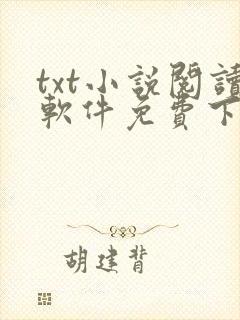 txt小說閱讀
軟件免費下
胡建背